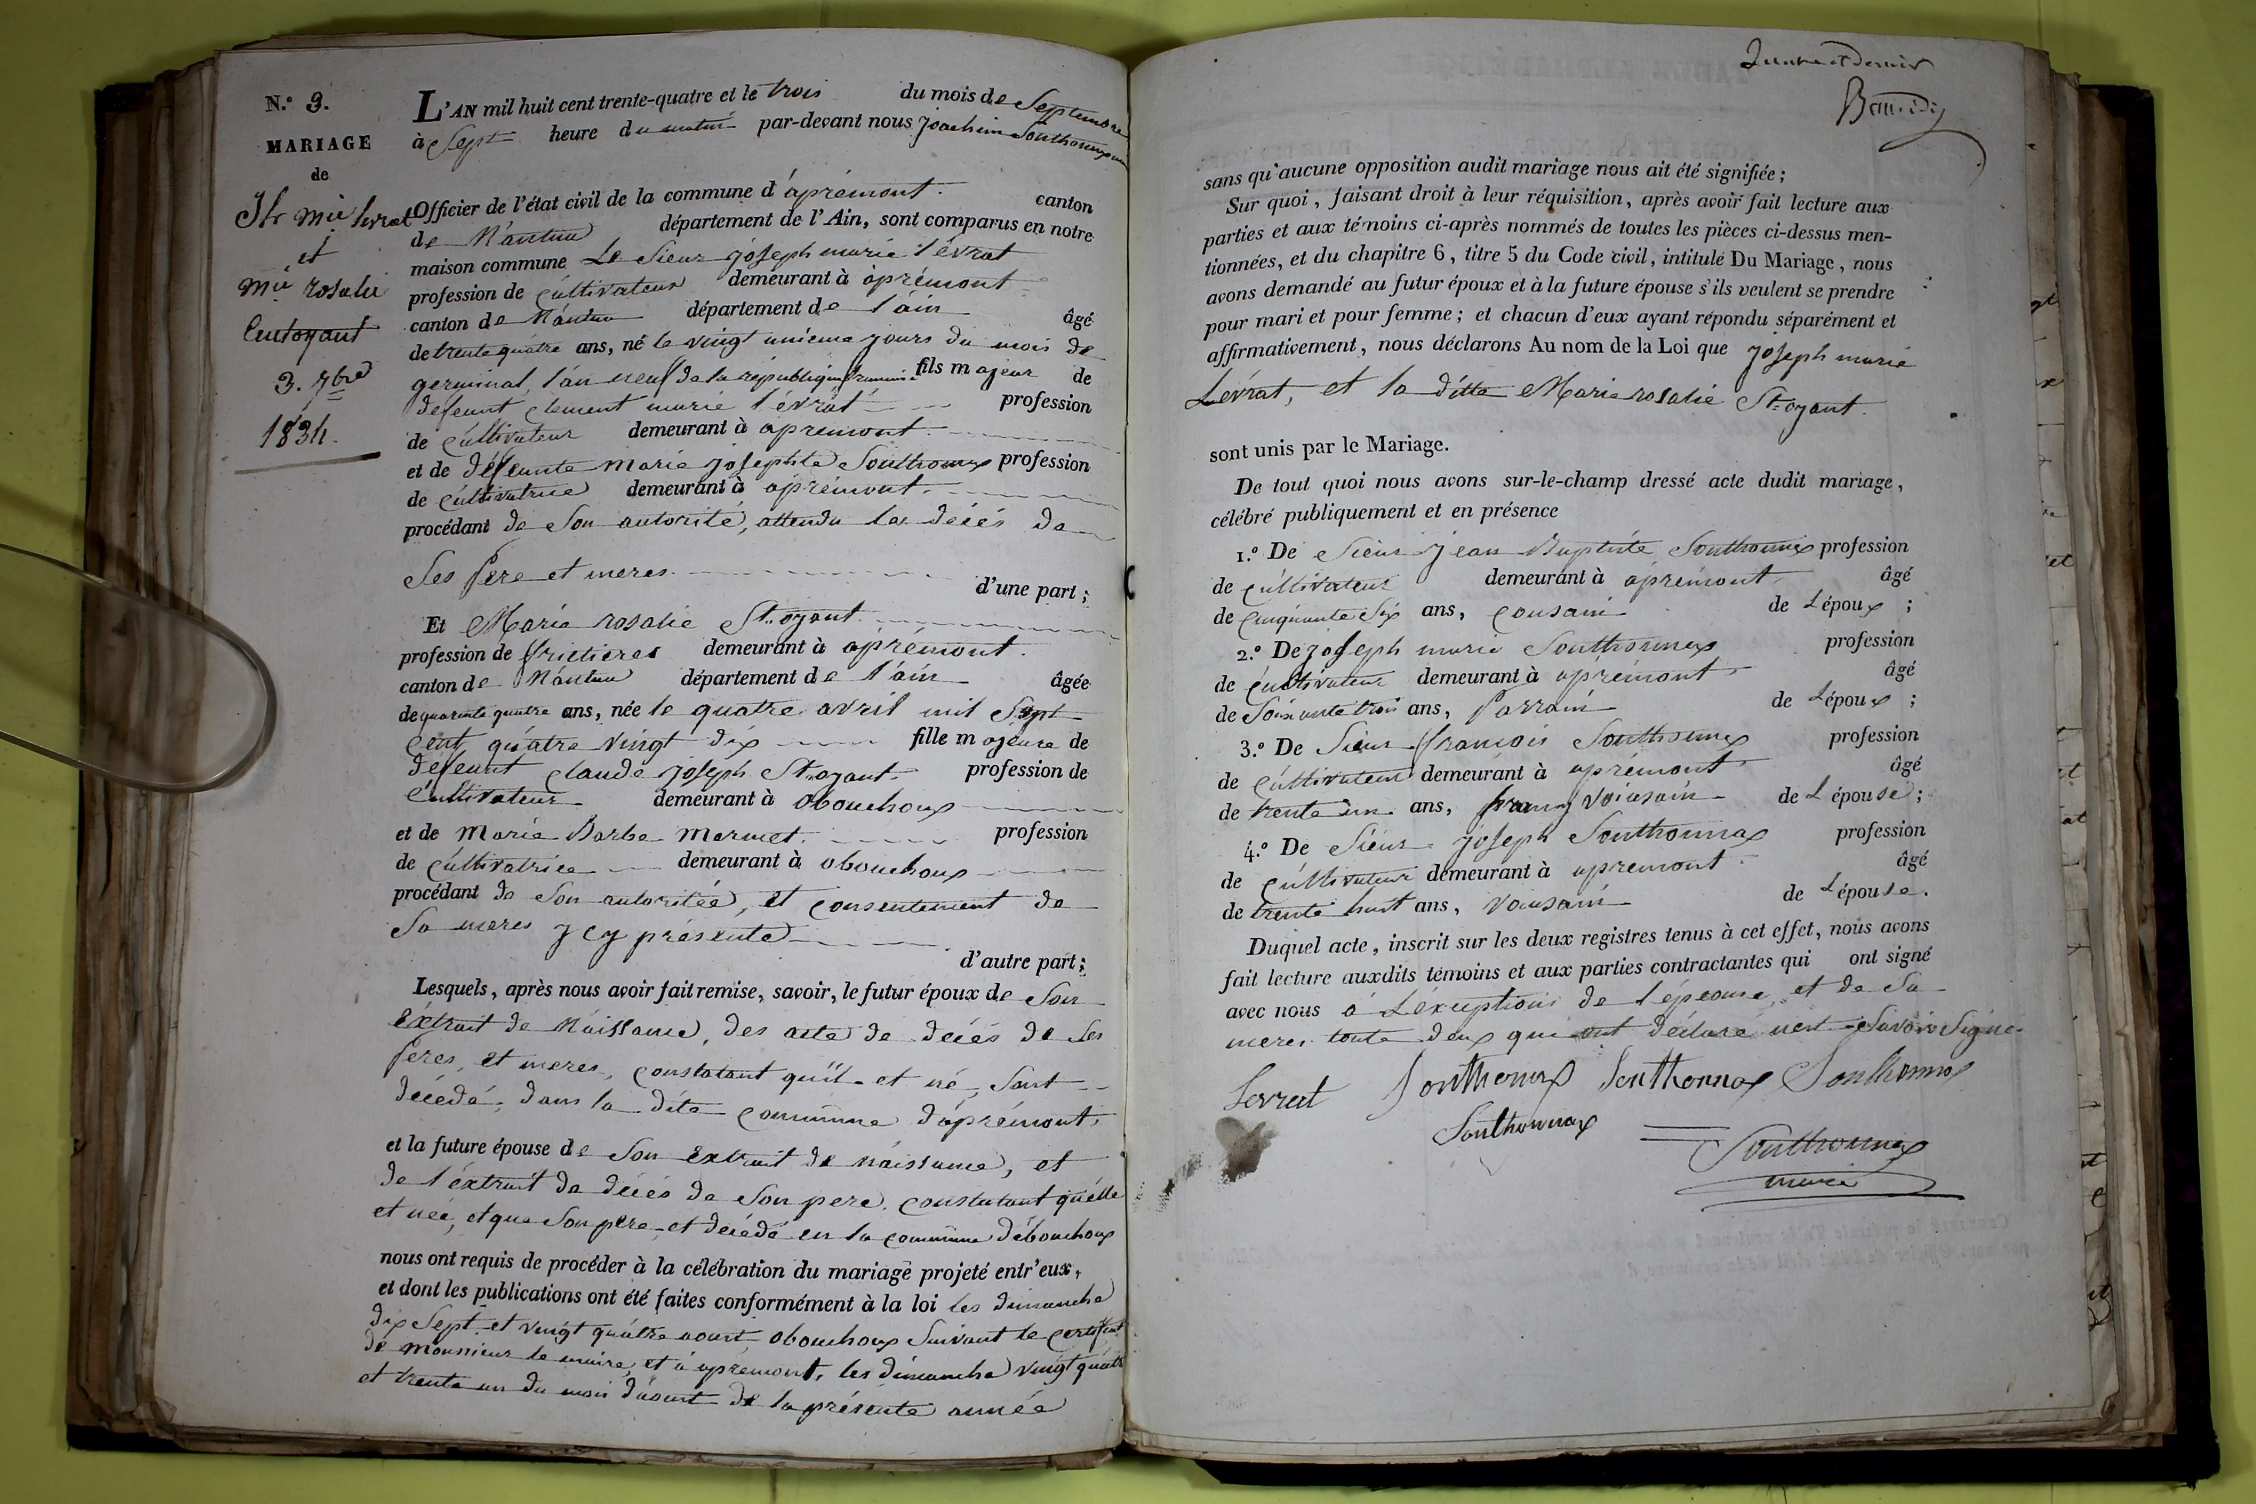 N.° 3.
MARIAGE
de
Jh Mie Levrat
et
Mie rosalie
Centoyant
3. 7bre
1834.
L'AN mil huit cent trente-quatre et le trois du mois de Septembre
à Sept heure du matin par-devant nous Joachim Southonnax
Officier de l'état civil de la commune d'àprémont. canton
de Nantua département de l'Ain, sont comparus en notre
maison commune Le Sieur joseph marie lévrat
profession de cultivateur demeurant à àprémont
canton de Nantua département de l'ain âgé
de trente quatre ans, né le vingt unieme jours du mois de
germinal, l'an neuf de la république fils majeur de
defeunt clement marie lévrat profession
de cultivateur demeurant à apremont
et de défeunte marie josephte Southonnax profession
de cultivatrice demeurant à aprémont.
procédant de Son autorité, attendu le décés de
Ses pere et meres d'une part;
Et Marie rosalie St. oyant
profession de fruitieres demeurant à aprémont.
canton de Nantua département de l'ain âgée
de quarente quatre ans, née le quatre avril mil Sept
cent quatre vingt dix fille majeure de
défeunt claude joseph St. oyant profession de
cultivateur demeurant à abouchoux
et de marie Barbe Mermet. profession
de cultivatrice demeurant à obouchoux
procédant de Son autoritée, et consentement de
Sa meres ycy présente
d'autre part;
Lesquels, après nous avoir fait remise, savoir, le futur époux de Son
Extrait de Naissance, des acte de décés de Ses
peres, et meres, constatant qu'il et né, Sont
décédé, dans la dite commune d'àprémont,
et la future épouse de Son Extrait de naissance, et
de l'éxtrait de décés de Son pere, constatant quélle
et née, et que Son pere et décédé en la commune débouchoux
nous ont requis de procéder à la célébration du mariage projeté entr'eux,
et dont les publications ont été faites conformément à la loi les dimanche
dix Sept et vingt quatre aout, obouchoux Suivant le certificat
de monsieur le maire, et à apremont, les dimanche vingt quatre
et trente un du mois d'aout de la présente année
Baudy
sans qu'aucune opposition audit mariage nous ait été signifiée;
Sur quoi, faisant droit à leur réquisition, après avoir fait lecture aux
parties et aux témoins ci-après nommés de toutes les pièces ci-dessus men-
tionnées, et du chapitre 6, titre 5 du Code civil, intitulé Du Mariage, nous
avons demandé au futur époux et à la future épouse s'ils veulent se prendre
pour mari et pour femme; et chacun d'eux ayant répondu séparément et
affirmativement, nous déclarons Au nom de la Loi que joseph marie
Levrat, et la ditte Marie rosalie St. oyant.
sont unis par le Mariage.
De tout quoi nous avons sur-le-champ dressé acte dudit mariage,
célébré publiquement et en présence
1.° De Sieur jean Baptiste Southonnax profession
de cultivateur demeurant à àprémont. âgé
de cinquante Six ans, cousain de L'époux;
2.° De joseph marie Southonnax profession
de cultivateur demeurant à àprémont âgé
de Soixante trois ans, parrain de L'époux;
3.° De Sieur françois Southonnax profession
de cultivateur demeurant à aprémont âgé
de trente un ans, voisain de L'épouse;
4.° De Sieur joseph Southonnax profession
de cultivateur demeurant à apremont âgé
de trente huit ans, voisain de L'épouse.
Duquel acte, inscrit sur les deux registres tenus à cet effet, nous avons
fait lecture auxdits témoins et aux parties contractantes qui ont signé
avec nous à L'éxception de l'épeouse, et de Sa
meres toute deux qui ont déclaré Savoir Signe
Levrat Southonax Southonnax Southonnax
Southonnax
Southonnax
maire